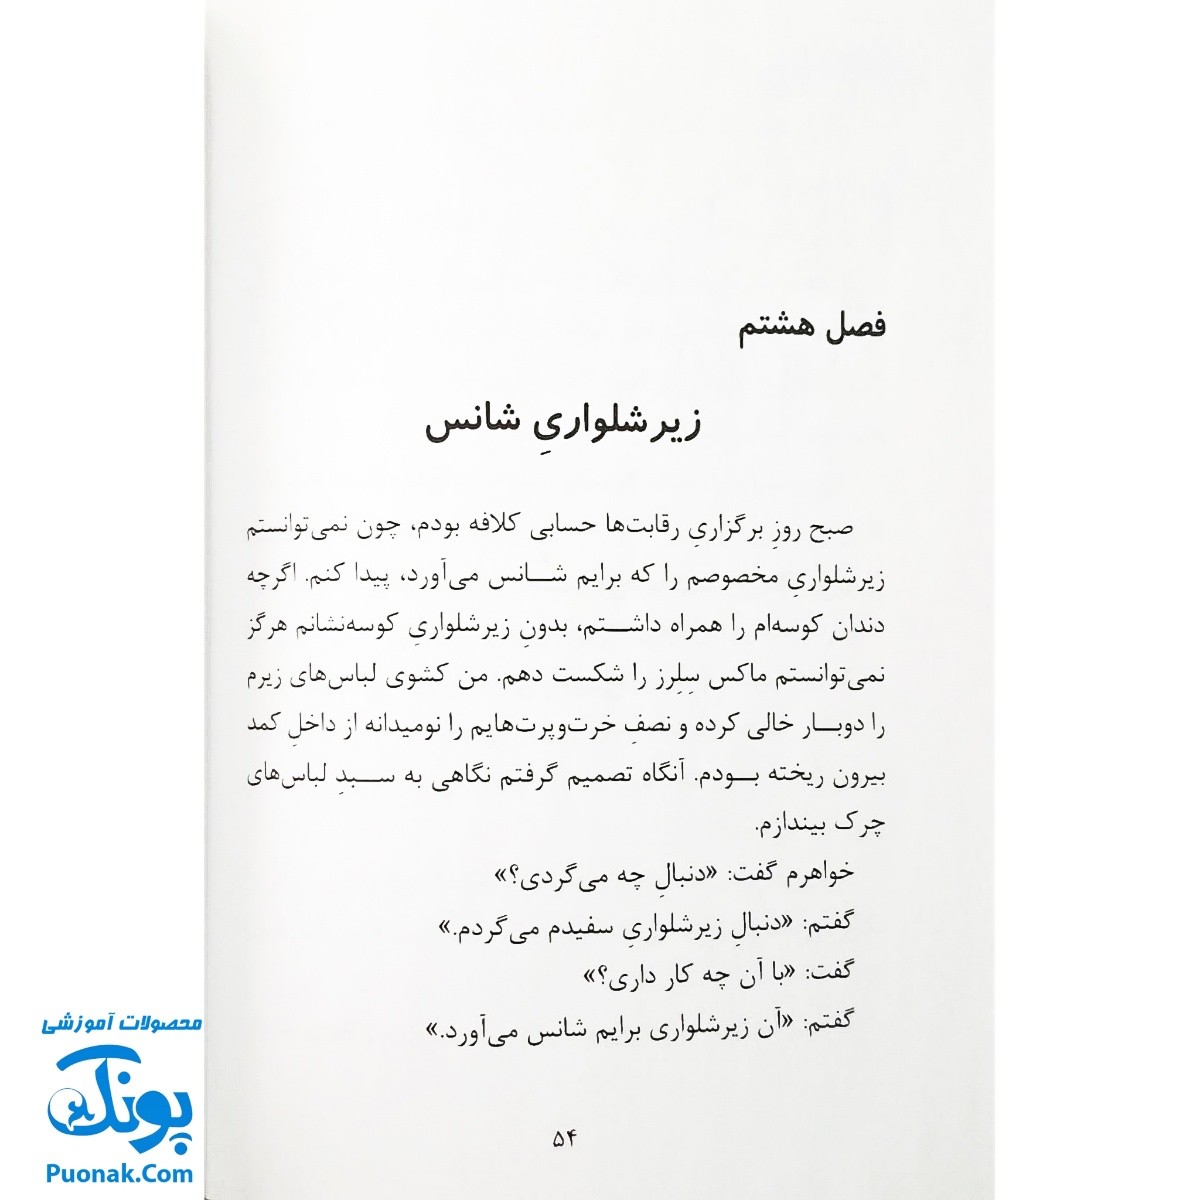 فصل هشتم
زیرشلواریِ شانس
صبح روزِ برگزاریِ رقابت‌ها حسابی کلافه بودم، چون نمی‌توانستم
زیرشلواریِ مخصوصم را که برایم شانس می‌آورد، پیدا کنم. اگرچه
دندان کوسه‌ام را همراه داشتم، بدونِ زیرشلواریِ کوسه‌نشانم هرگز
نمی‌توانستم ماکس سِلِرز را شکست دهم. من کشوی لباس‌های زیرم
را دوبار خالی کرده و نصفِ خرت‌وپرت‌هایم را نومیدانه از داخلِ کمد
بیرون ریخته بودم. آنگاه تصمیم گرفتم نگاهی به سبدِ لباس‌های
چرک بیندازم.
خواهرم گفت: «دنبالِ چه می‌گردی؟»
گفتم: «دنبالِ زیرشلواریِ سفیدم می‌گردم.»
گفت: «با آن چه کار داری؟»
گفتم: «آن زیرشلواری برایم شانس می‌آورد.»
۵۴
محصولات آموزشی
پونک
Puonak.Com